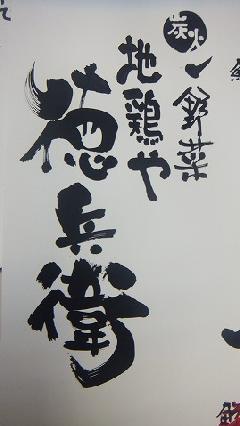 炭火 野菜
地鶏や
徳兵衛